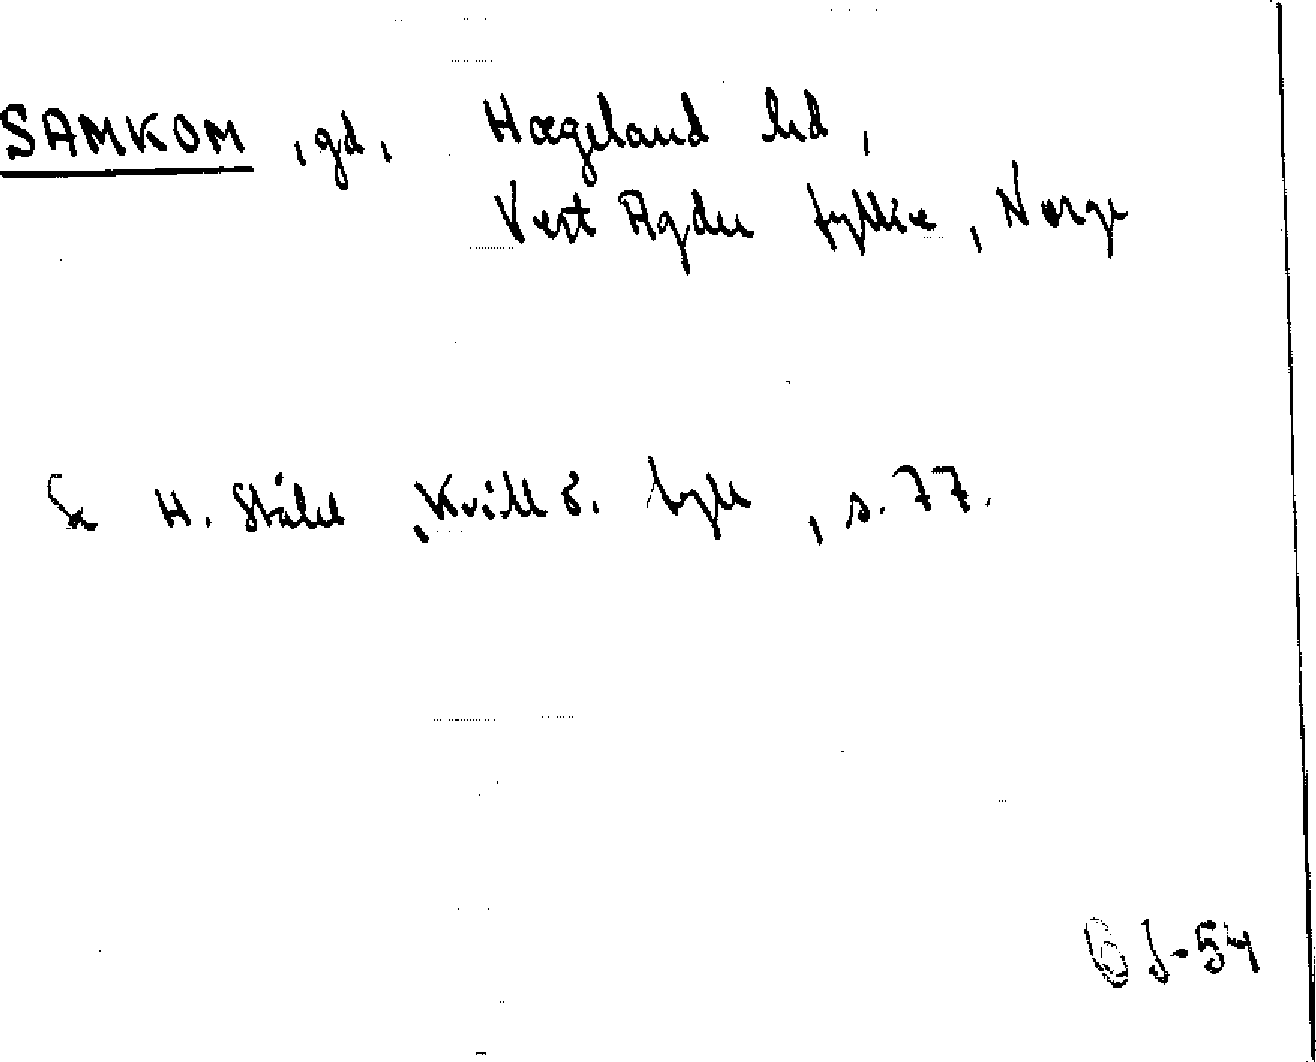 SAMKOM, gd, Hægeland hrd,
Vest Agder fylke, Norge
Se H. Ståhl, Kvill o. tyll, s. 77.
GJ-54